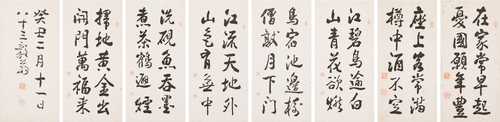 在家常早起
憂國願年豐
座上客常滿
樽中酒不空
江碧鳥逾白
山青花欲燃
鳥宿池邊樹
僧敲月下門
江流天地外
山色有無中
洗硯魚吞墨
煮茶鶴避煙
掃地黃金出
開門萬福來
癸丑二月十一日
八十三叟